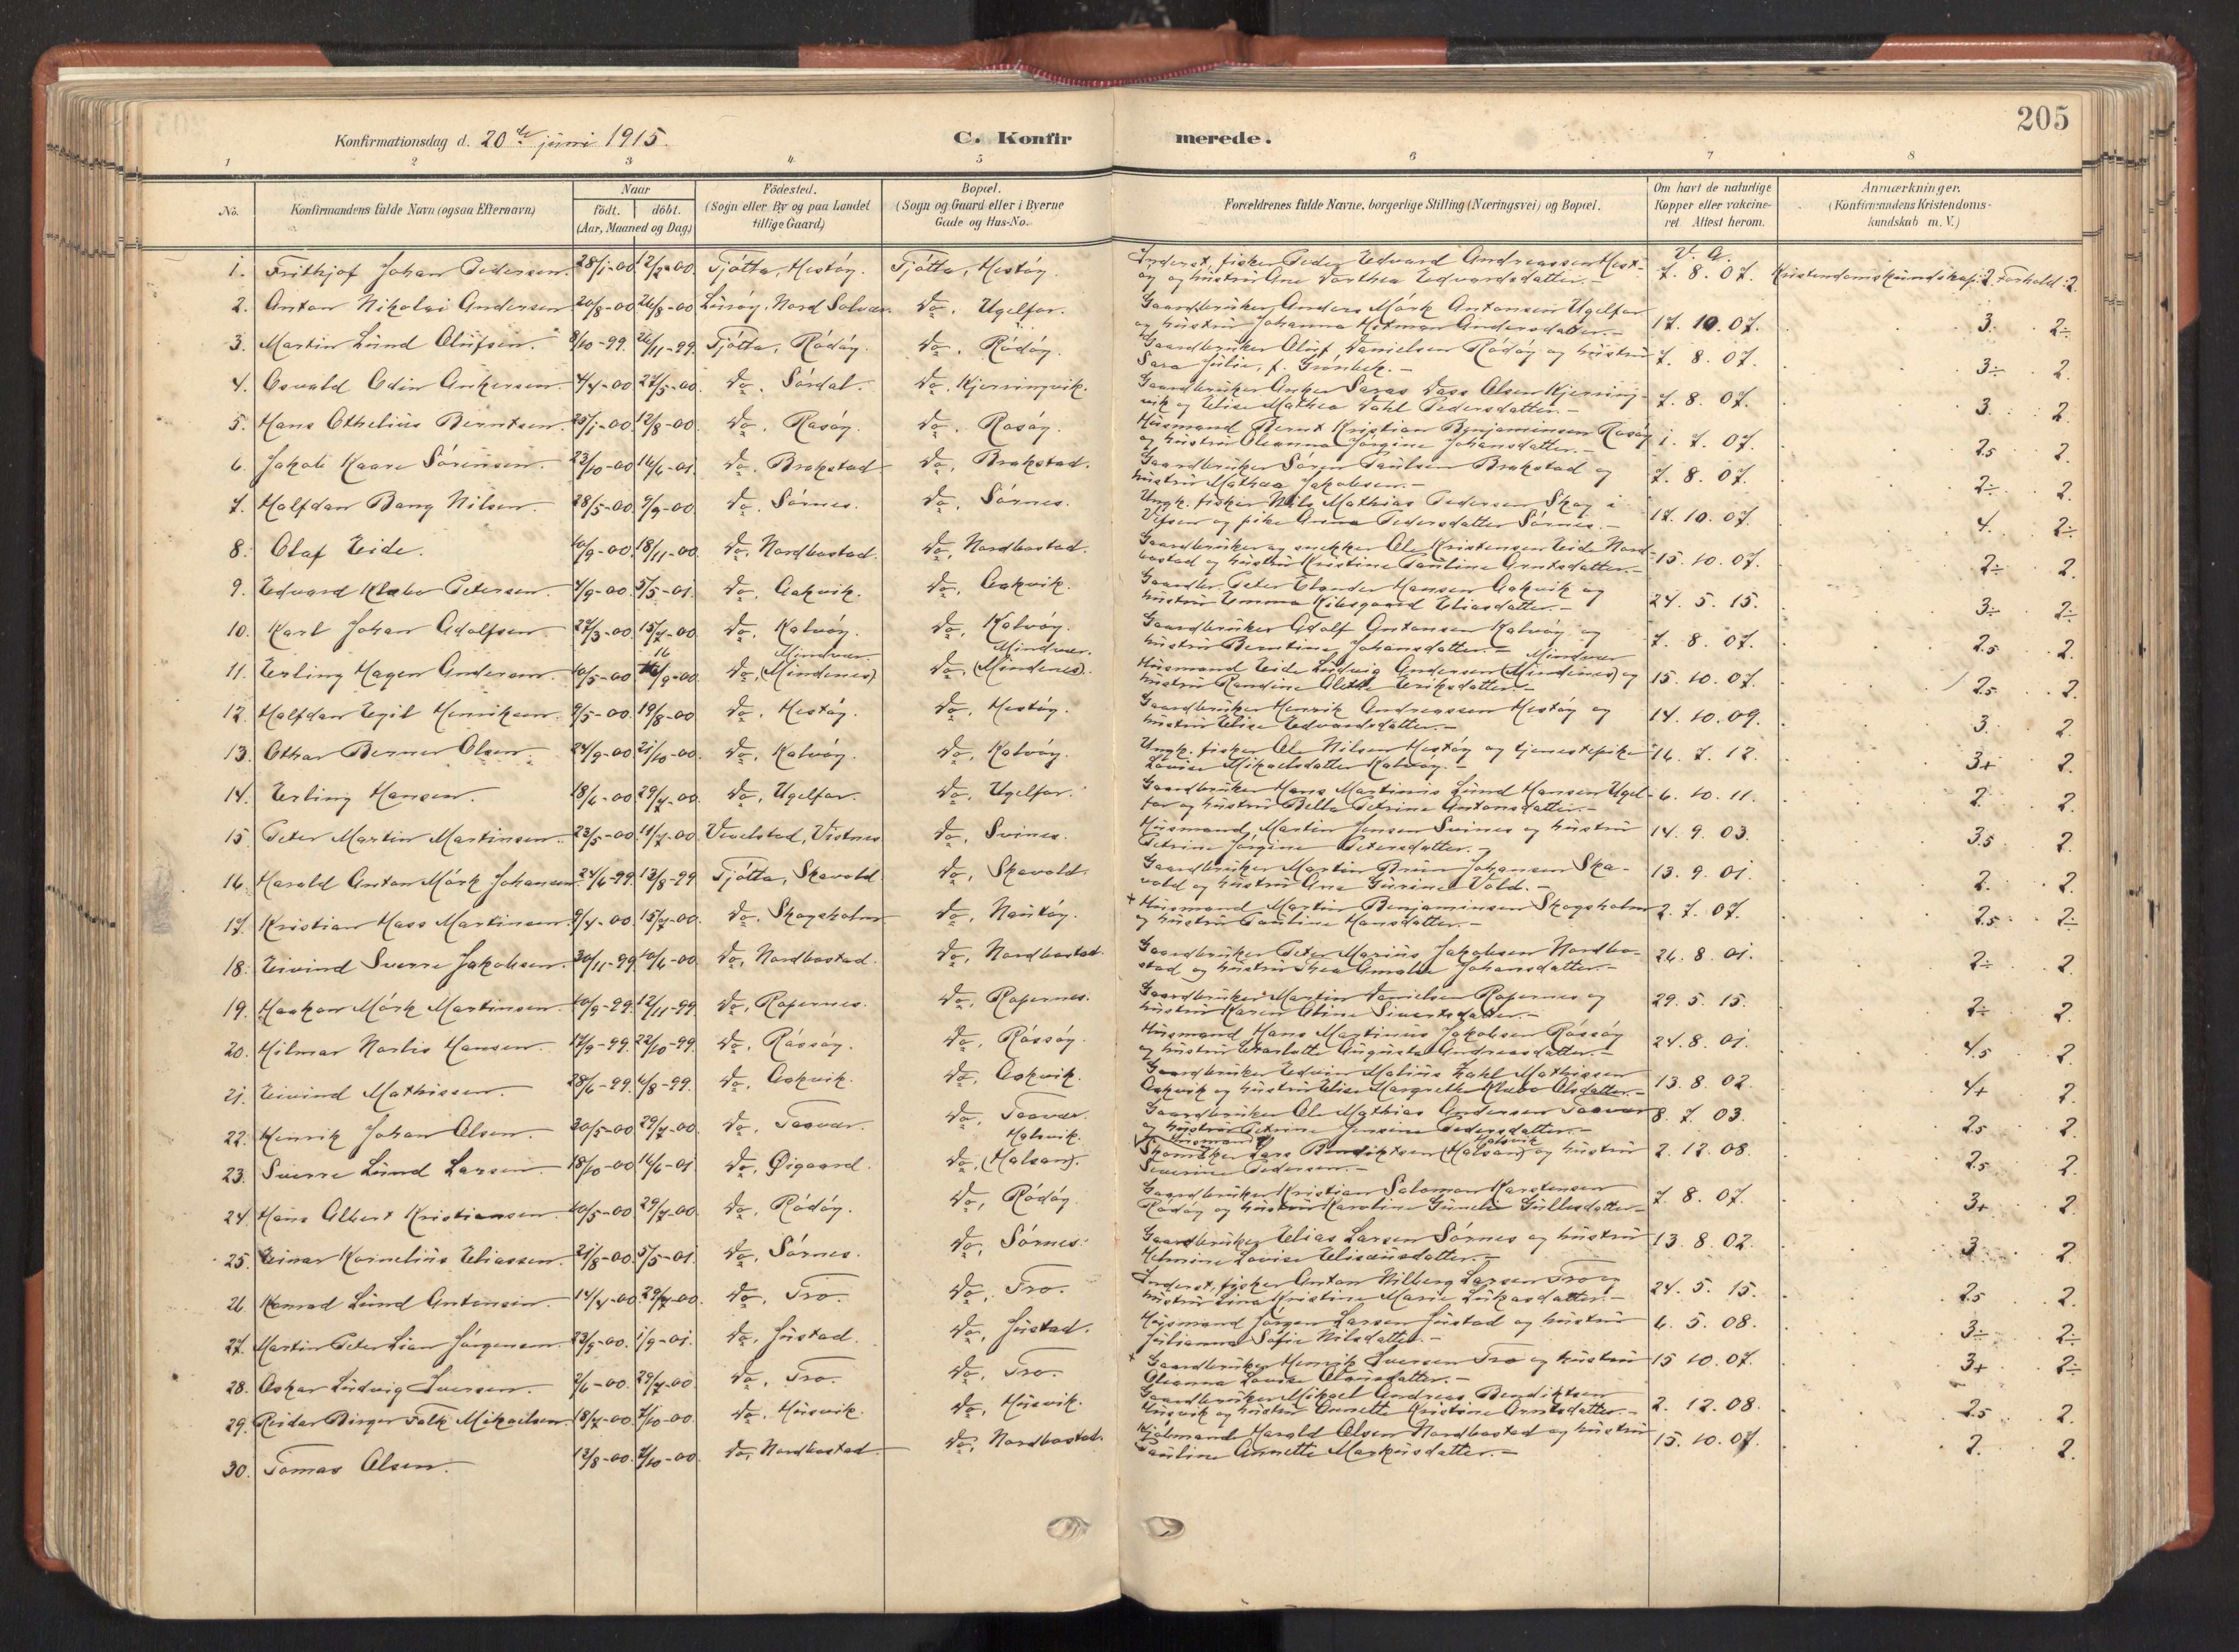 205
Konfirmationsdag d. 20de juni 1915.
C. Konfirmerede.
1 2 3 4 5 6 7 8
No. Konfirmandens fulde Navn (ogsaa Efternavn) Naar födt. döbt. (Aar, Maaned og Dag) Födested. (Sogn eller By og paa Landet tillige Gaard) Bopæl. (Sogn og Gaard eller i Byerne Gade og Hus-No. Forældrenes fulde Navne, borgerlige Stilling (Næringsvei) og Bopæl. Om havt de naturlige Kopper eller vakcineret. Attest herom. Anmærkninger. (Konfirmandens Kristendomskundskab m. V.)
1. Frithjof Johan Pedersen. 28/1-00 12/2-00 Tjótta, Hestóy. Tjótta, Hestóy. Inderst, fisker Peder Edvard Andreassen Hestóy og hústrú Ane Dorthea Edvardsdatter.- V. A. 7. 8. 07. Kristendomskúndskap: 2. Forhold: 2.
2. Anton Nikolai Andersen 20/8-00 26/8-00 Lúróy, Nord Solvær. Do, Ugelfar. Gaardbrúker Anders Mórk Antonsen Ugelfar og hústrú Johanna Hitman Andersdatter.- 17. 10. 07. 3. 2÷
3. Martin Lúnd Olúfsen. 8/10-99. 26/11-99. Tjótta, Ródóy. Do, Ródóy. Gaardbrúker Olúf Danielsen Ródóy og hústrú Sara Júlie, f. Grónbek.- 7. 8. 07. 3÷ 2.
4. Osvald Odin Ankersen 4/4-00 27/5-00. Do, Sórdal. Do, Kjerringvik. Gaardbrúker Anker Saras Dass Olsen Kjerringvik og Elise Mathea Dahl Pedersdatter.- 7. 8. 07. 3. 2.
5. Hans Othelius Berntsen. 25/1-00. 12/8-00. Do, Rosóy. Do, Rosóy. Húsmand Bernt Kristian Benjaminsen Rosóy og hústrú Oleanna Jórgine Johansdatter.- 1. 7. 07. 2.5 2.
6. Jakob Kaare Sórensen. 23/10-00 16/6-01. Do, Brakstad Do, Brakstad. Gaardbrúker Sóren Paúlsen Brakstad og hústrú Mathea Jakobsen.- 7. 8. 07. 2÷ 2.
7. Halfdan Bang Nilsen. 28/5-00. 9/9-00. Do, Sórnes. Do, Sórnes. Ungk. fisker Nils Mathias Pedersen Skog i Vefsen og pike Anna Pedersdatter Sórnes.- 17. 10. 07. 4. 2÷
8. Olaf Eide. 10/9-00. 18/11-00. Do, Nordbostad. Do, Nordbostad. Gaardbrúker og snekker Ole Kristensen Eide Nordbostad og hústrú Kristine Paúline Arntsdatter.- 15. 10. 07. 2÷ 2.
9. Edvard Klæbo Petersen. 4/9-00. 5/5-01. Do, Aakvik. Do, Aakvik. Gaardbr. Peter Elander Hansen Aakvik og hústrú Emma Kibsgaard Eliasdatter.- 24. 5. 15. 3÷ 2÷
10. Karl Johan Adolfsen 27/3-00. 15/7-00. Do, Kalvóy. Do, Kalvóy. Gaardbrúker Adolf Antonsen Kalvóy og hústrú Berntine Johansdatter.- 7. 8. 07. 2.5 2.
11. Erling Hagen Andersen. 10/5-00 16/9-00. Do, Mindvær (Mindenes) Do, Mindvær. (Mindenes). Húsmand Eide Lúdvig Andersen Mindvær (Mindenes) og hústrú Randine Olette Eriksdatter.- 15. 10. 07. 2.5 2.
12. Halfdan Egil Henriksen. 9/5-00. 19/8-00 Do, Hestóy. Do, Hestóy. Gaardbrúker Henrik Andreassen Hestóy og hústrú Elise Edvardsdatter.- 14. 10. 09. 3. 2.
13. Othar Berner Olsen. 24/9-00. 21/10-00 Do, Kalvóy. Do, Kalvóy. Ungk. fisker Ole Nilsen Hestóy og tjenestepike Lovise Mikaelsdatter Kalvóy.- 16. 7. 12. 3+ 2.
14. Erling Hansen. 18/6-00 29/7-00. Do, Ugelfar. Do, Ugelfar. Gaardbrúker Hans Martinús Lúnd Hansen Ugelfar og hústrú Bella Petrine Antonsdatter.- 6. 10. 11. 2. 2.
15. Peter Martin Martinsen. 23/5-00. 11/7-00 Vevelstad, Vistnes Do, Svines. Húsmand Martin Jensen Svines og hústrú Petrine Jórgine Petersdatter.- 14. 9. 03. 3.5 2.
16. Harald Anton Mórk Johansen. 24/6-99. 13/8-99 Tjótta, Skavold Do, Skavold. Gaardbrúker Martin Brún Johansen Skavold og hústrú Ane Gúrine Vold.- 13. 9. 01. 2. 2.
17. Kristian Hass Martinsen. 9/4-00. 15/7-00. Do, Skogsholm Do, Naútóy. + Húsmand Martin Benjaminsen Skogsholm og hústrú Paúline Hansdatter.- 2. 7. 07. 2.5 2÷
18. Eivind Sverre Jakobsen. 30/11-99. 10/6-00. Do, Nordbostad. Do, Nordbostad. Gaardbrúker Peter Mariús Jakobsen Nordbostad og hústrú Thea Amalie Johansdatter.- 26. 8. 01. 2÷ 2.
19. Haakon Mórk Martinsen. 10/9-99. 12/11-99 Do, Rapernes. Do, Rapernes. Gaardbrúker Martin Danielsen Rapernes og hústrú Karen Oline Sivertsdatter.- 29. 5. 15. 2÷ 2.
20. Hilmar Norlis Hansen. 17/9-99. 22/10-99. Do, Róssóy. Do, Róssóy. Húsmand Hans Martinús Jakobsen Róssóy og hústrú Charlotte Aúgústa Andreasdatter.- 24. 8. 01. 4.5 2.
21. Eivind Mathissen. 28/6-99. 6/8-99. Do, Aakvik. Do, Aakvik. Gaardbrúker Edvin Maliús Zahl Mathissen Aakvik og hústrú Elise Margrethe Klæbo Olsdatter.- 13. 8. 02. 4+ 2.
22. Henrik Johan Olsen. 30/5-00 29/7-00. Do, Toovær. Do, Toovær. Gaardbrúker Ole Mathias Andersen Toovær og hústrú Petrine Jensine Pedersdatter.- 8. 7 03. 2.5 2.
23. Sverre Lúnd Larsen. 18/10-00 16/6-01 Do, Øigaard. Do, Halsvik. (Halsan). Húsmand Skomaker Lars Bendiktsen Halsvik (Halsan) og hústrú Severine Pedersen.- 2. 12. 08. 2.5 2.
24. Hans Albert Kristiansen. 10/5-00. 29/7-00. Do, Ródóy. Do, Ródóy. Gaardbrúker Kristian Salomon Karstensen Ródóy og hústrú Karoline Gúnelie Gúllesdatter.- 7. 8. 07. 3+ 2.
25. Einar Kornelius Eliassen. 21/8-00. 5/5-01. Do, Sórnes. Do, Sórnes. Gaardbrúker Elias Larsen Sórnes og hústrú Helmine Lovise Eliseúsdatter.- 13. 8. 02. 3. 2.
26. Konrad Lúnd Antonsen. 14/4-00. 29/7-00. Do, Tro. Do, Tro. Inderst, fisker Anton Hilberg Larsen Tro og hústrú Lina Kristine Marie Lúkasdatter.- 24. 5. 15. 2.5 2.
27. Martin Peter Lian Jórgensen. 23/9-00. 1/9-01. Do, Jústad. Do, Jústad. Húsmand Jórgen Larsen Jústad og hústrú Júlianna Sofie Nilsdatter.- 6. 5. 08. 3÷ 2÷
28. Oskar Lúdvig Iversen. 2/6-00. 29/7-00. Do, Tro. Do, Tro. + Gaardbrúker Henrik Iversen Tro og hústrú Olianna Lovise Olaúsdatter.- 15 10. 07. 3+ 2÷
29. Reidar Birger Falk Mikaelsen. 18/7-00. 7/10-00. Do, Húsvik. Do, Húsvik. Gaardbrúker Mikael Andreas Bendiktsen Húsvik og hústrú Annette Kristine Arntsdatter.- 2. 12. 08. 2.5 2.
30. Tomas Olsen. 12/8-00. 7/10-00. Do, Nordbostad. Do, Nordbostad. Harald Olsen Nordbostad og hústrú Paúline Annette Markúsdatter.- 15. 10. 07. 2. 2.